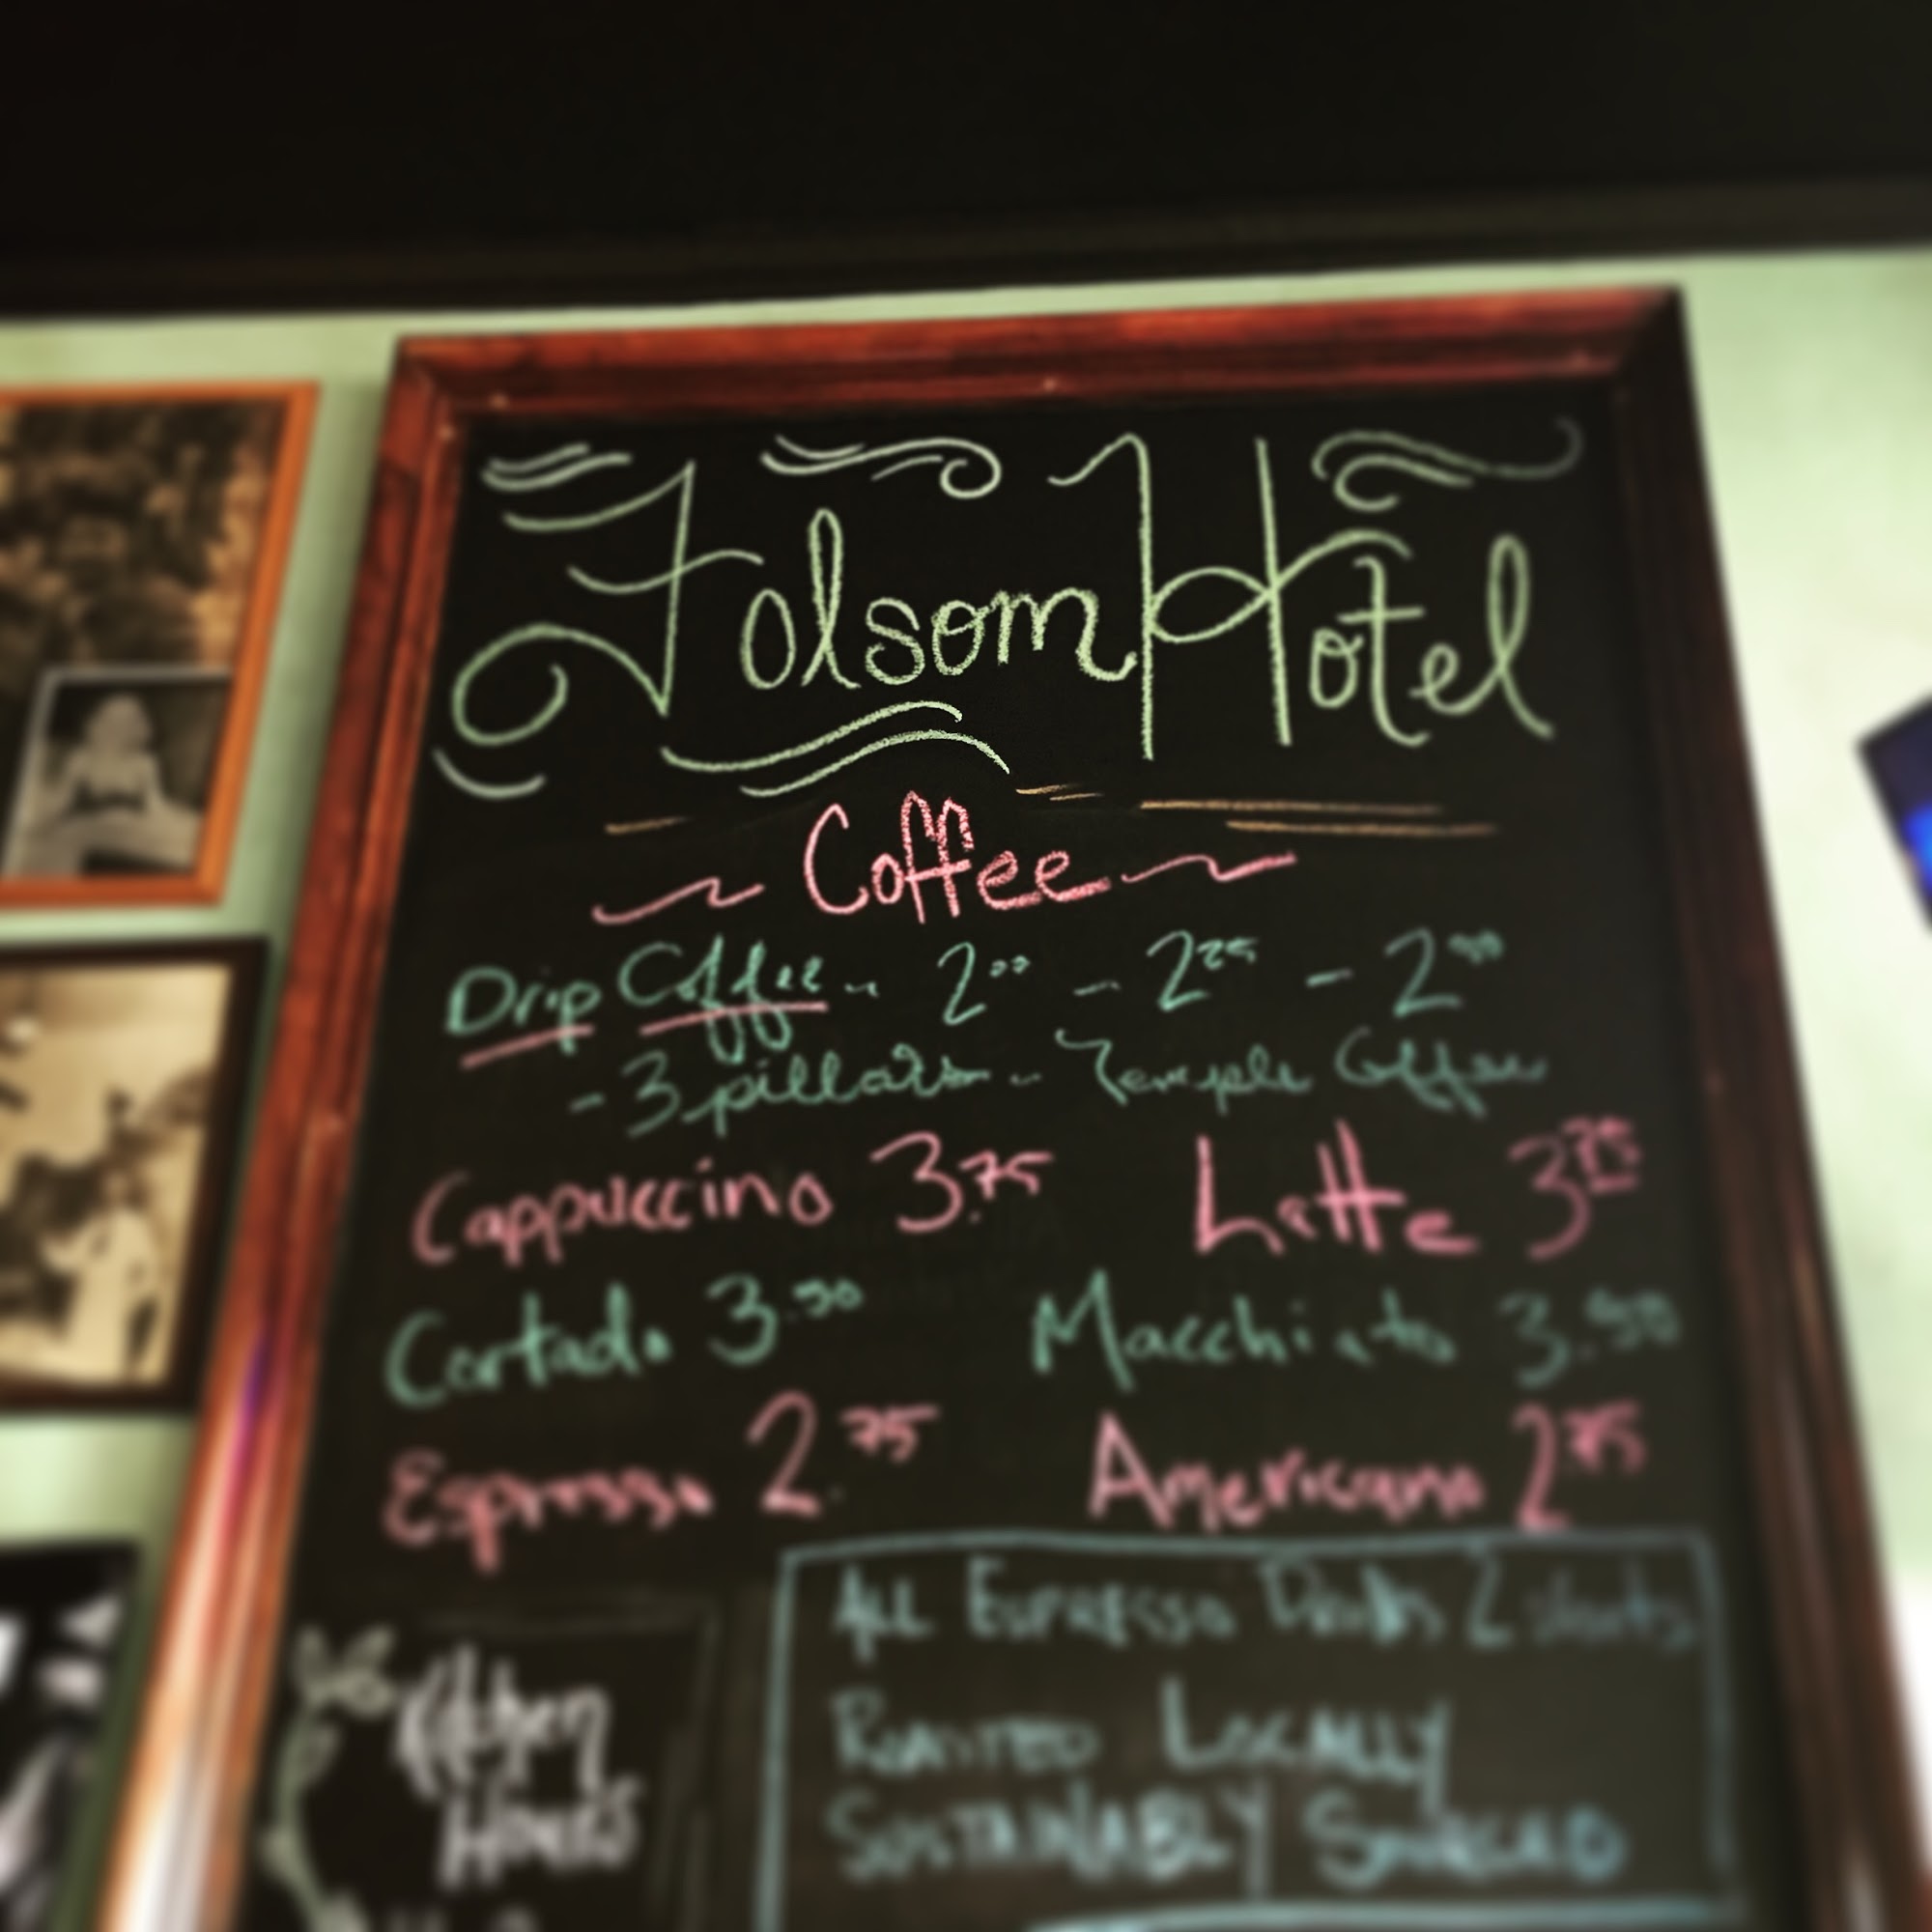 Folsom Hotel
Coffee
Drip Coffee - 2.00 - 2.25 - 2.50
- 3 pillars - Temple Coffee
Cappuccino 3.75 Latte 3.75
Cortado 3.50 Macchiato 3.50
Espresso 2.75 Americano 2.75
All Espresso Drinks 2 shots
Roasted Locally
Sustainably Sourced
Kitchen
Hours